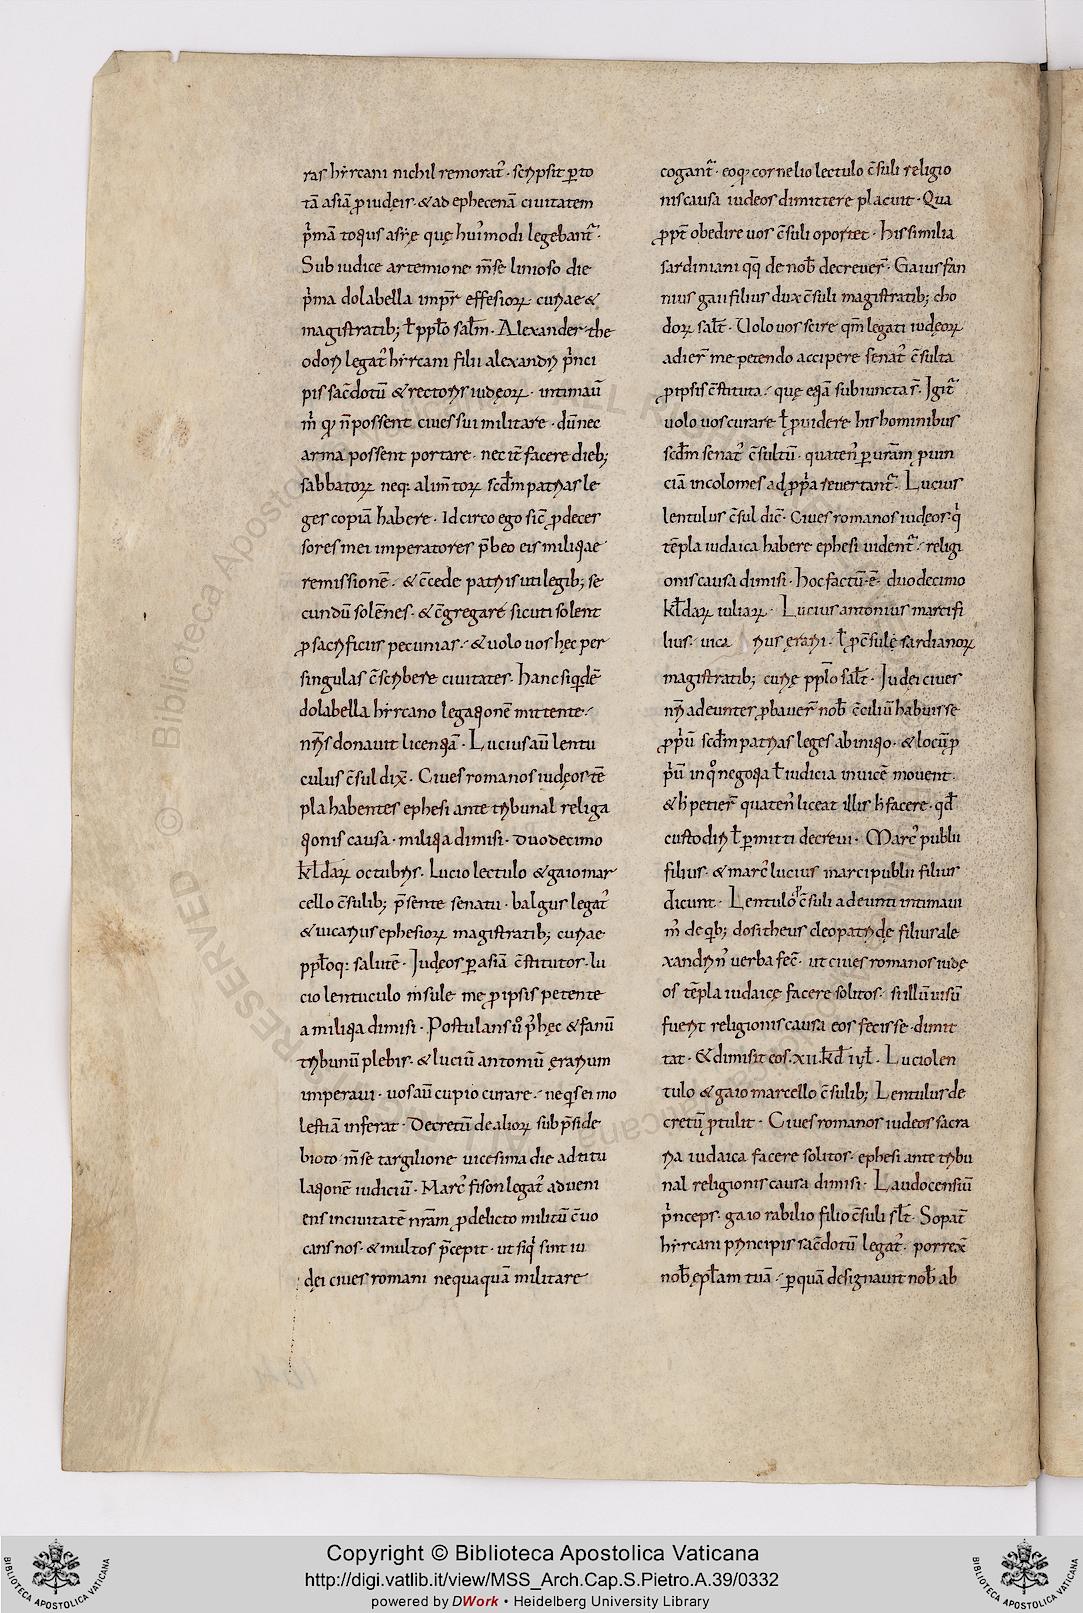 ras hẏrcani nichil remorat᷒ · scripsit ꝑ to
tā asiā ꝓ iudęis · & ad ephecenā ciuitatem
p̄mā totius asyę quę hui᷒modi legebant᷒ ·
Sub iudice artemone m̄se linioso die
p̄ma dolabella imp̄r effesioꝝ curiae &
magistratib; ł pp̄lo sał̄m · Alexander the
odori legat᷒ hẏrcani filii alexandri p̄nci
pis sac̄dotū & rectoris iudęoꝝ · intimauū
m̄ qđ n̄ possent ciues sui militare · dū nec
arma possent portare · nec it̄ facere dieb;
sabbatoꝝ neq; alim̄toꝝ scđm patrias le
ges copiā habere · Idcirco ego sic̄ ꝓdeces
sores mei imperatores p̄beo eis militiae
remissionē · & c̄cede patriis uti legib; se
cundū solēnes · & c̄gregare sicuti solent
ꝓ sacrificiis pecunias · & uolo uos hęc per
singulas c̄scribere ciuitates · Hanc siqđē
dolabella hẏrcano legationē mittente ·
nr̄is donauit licentiā · Lucius aū lentu
culus c̄sul dix̄ · Ciues romanos iudęos tē
pla habentes ephesi ante tribunal religa
tionis causa · militia dimisi · Duodecimo
kłdaꝝ octubris · Lucio lectulo & gaio mar
cello c̄sulib; p̄sente senatu · balgus legat᷒
& uicarius ephesioꝝ magistratib; curiae
pp̄loq; salutē · Iudęos ꝑ asiā c̄stitutos · lu
cio lentuculo m̄sule me ꝓ ipsis petente
a militia dimisi · Postulans ů p̄ hęc & fanū
tribunū plebis · & luciū antoniū ęrarium
imperaui · uos aū cupio curare · ne qs ei mo
lestiā inferat · Decretū de alioꝝ sub p̄side
bioto m̄se targilione uicesima die ad titu
lationē iudiciū · Marc᷒ fison legat᷒ adueni
ens in ciuitatē nr̄am ꝓ delicto militū c̄uo
cans nos · & multos p̄cepit · ut siq̄ sint iu
dęi ciues romani nequaquā militare
cogant᷒ · eoq; cornelio lectulo c̄suli religio
nis causa iudeos dimittere placuit · Qua
ꝓpt̄ obedire uos c̄suli oportet · his similia
sardiniani qq̄ de nob̄ decreuer̄ · Gaius fan
nius gaii filius dux c̄suli magistratib; cho
doꝝ sal̄t · Uolo uos scire qm̄ legati iudęoꝝ
adier̄ me petendo accipere senat᷒ c̄sulta
ꝓ ipsis c̄stituta · quę etiā subiuncta s̄ · Igit᷒
uolo uos curare ł ꝓuidere his hominibus
scđm senat᷒ c̄sultū · quaten᷒ ꝑ uram̄ ꝓuin
ciā incolomes ad ꝓpria reuertant᷒ · Lucius
lentulus c̄sul dic̄ · Ciues romanos iudęos · q̄
tēpla iudaica habere ephesi uident᷒ · religi
onis causa dimisi · hoc factū · ē · duodecimo
kłdaꝝ iuliaꝝ · Lucius antonius marci fi
lius · uica rius ęrarii · ł ꝓc̄sulę sardianoꝝ
magistratib; curię pp̄lo sal̄t · Iudęi ciues
nr̄i adeuntes ꝓbauer̄ nob̄ c̄ciliū habuisse
ꝓpriū scđm patrias leges ab initio · & locū ꝓ
p̄ū in qͦ negotia ł iudicia inuicē mouent ·
& h̄ petier̄ quaten᷒ liceat illis h̄ facere · qđ
custodiri ł ꝑmitti decreui · Marc᷒ publii
filius · & marc᷒ lucius marci publii filius
dicunt · Lentulo ꝓc̄suli adeunti intimaui
m̄ de qb; dositheus cleopatridę filius ale
xandrin᷒ uerba fec̄ · ut ciues romanos iudę
os tēpla iudaicę facere solitos · si illū uisū
fuerit religionis causa eos fecisse · dimit
tat · & dimisit eos · xii · kđ iył · Lucio len
tulo & gaio marcello c̄sulib; Lentulus de
cretū ꝓtulit · Ciues romanos iudeos sacra
ria iudaica facere solitos · ephesi ante tribu
nal religionis causa dimisi · Laudocensiū
p̄nceps · gaio rabilio filio c̄suli sl̄t · Sopat̄
hẏrcani principis sac̄dotū legat᷒ · porrex̄
nob̄ epl̄am tuā · ꝑ quā designauit nob̄ ab
Copyright © Biblioteca Apostolica Vaticana
http://digi.vatlib.it/view/MSS_Arch.Cap.S.Pietro.A.39/0332
powered by DWork • Heidelberg University Library